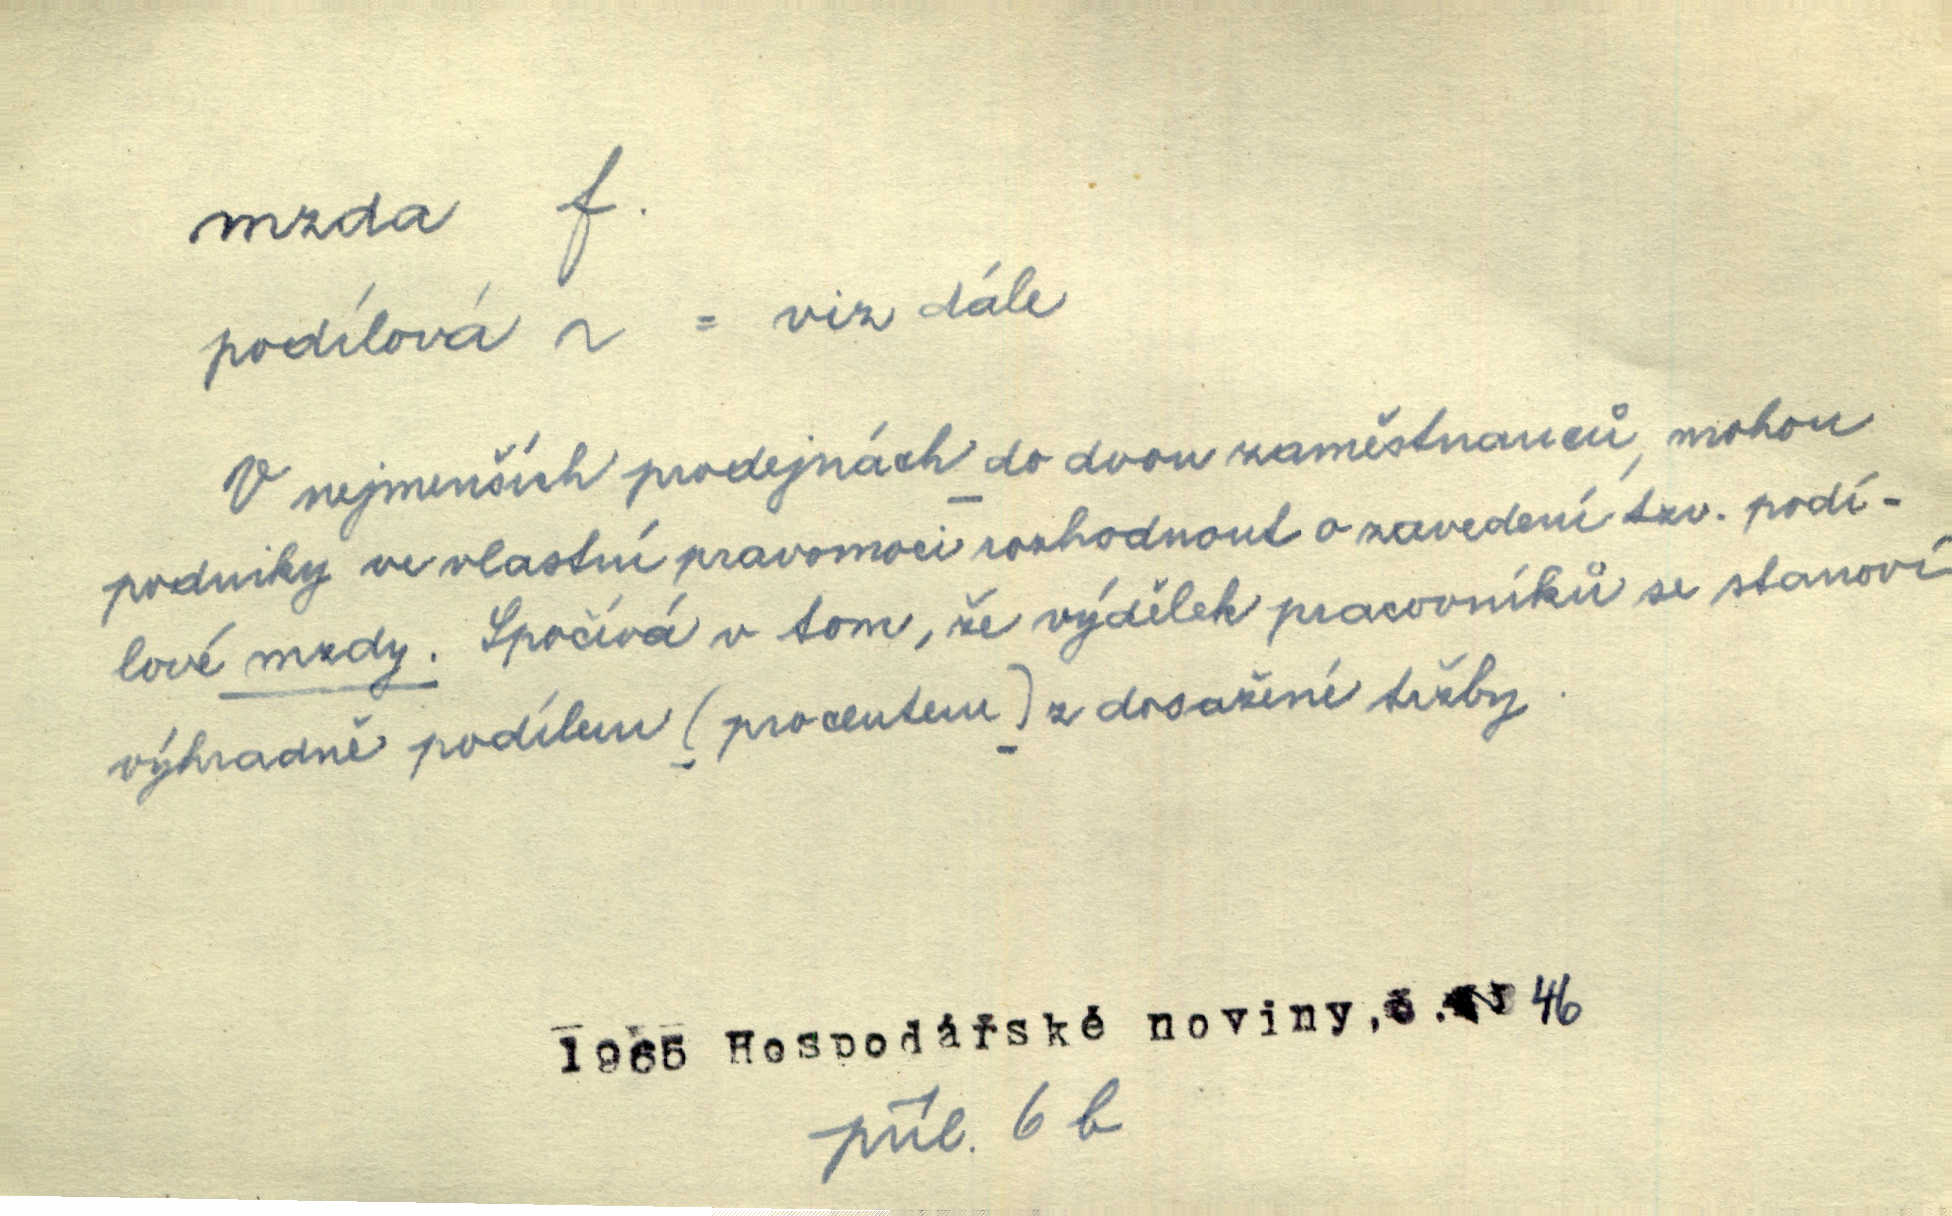 mzda f.
podílová ~ = viz dále
V nejmenších prodejnách do dvou zaměstnanců, mohou
podniky ve vlastní pravomoci rozhodnout o zavedení tzv. podí-
lové mzdy. Spočívá v tom, že výdělek pracovníků se stanoví
výhradně podílem (procentem) z dosažené tržby.
1965 Hospodářské noviny, č. 46
příl. 6 b